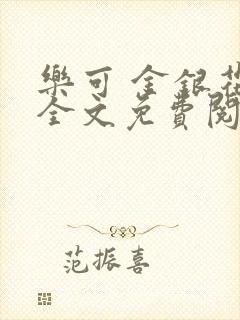 樂可 金銀花
全文免費閱
范振喜